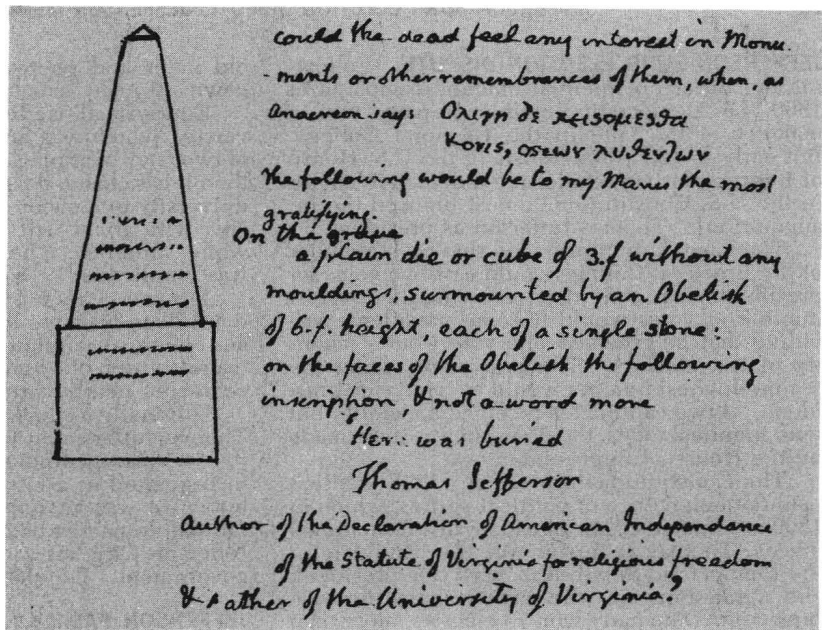 could the dead feel any interest in Monu
-ments or other remembrances of them, when, as
Anacreon says Ολιγη δε κεισομεσθα
Κονις, οστεων λυθεντων
the following would be to my Manes the most
gratifying.
On the grave
a plain die or cube of 3.f without any
mouldings, surmounted by an Obelisk
of 6.f. height, each of a single stone:
on the faces of the Obelisk the following
inscription, & not a word more
'Here was buried
Thomas Jefferson
Author of the Declaration of American Independance
of the Statute of Virginia for religious freedom
& Father of the University of Virginia.'